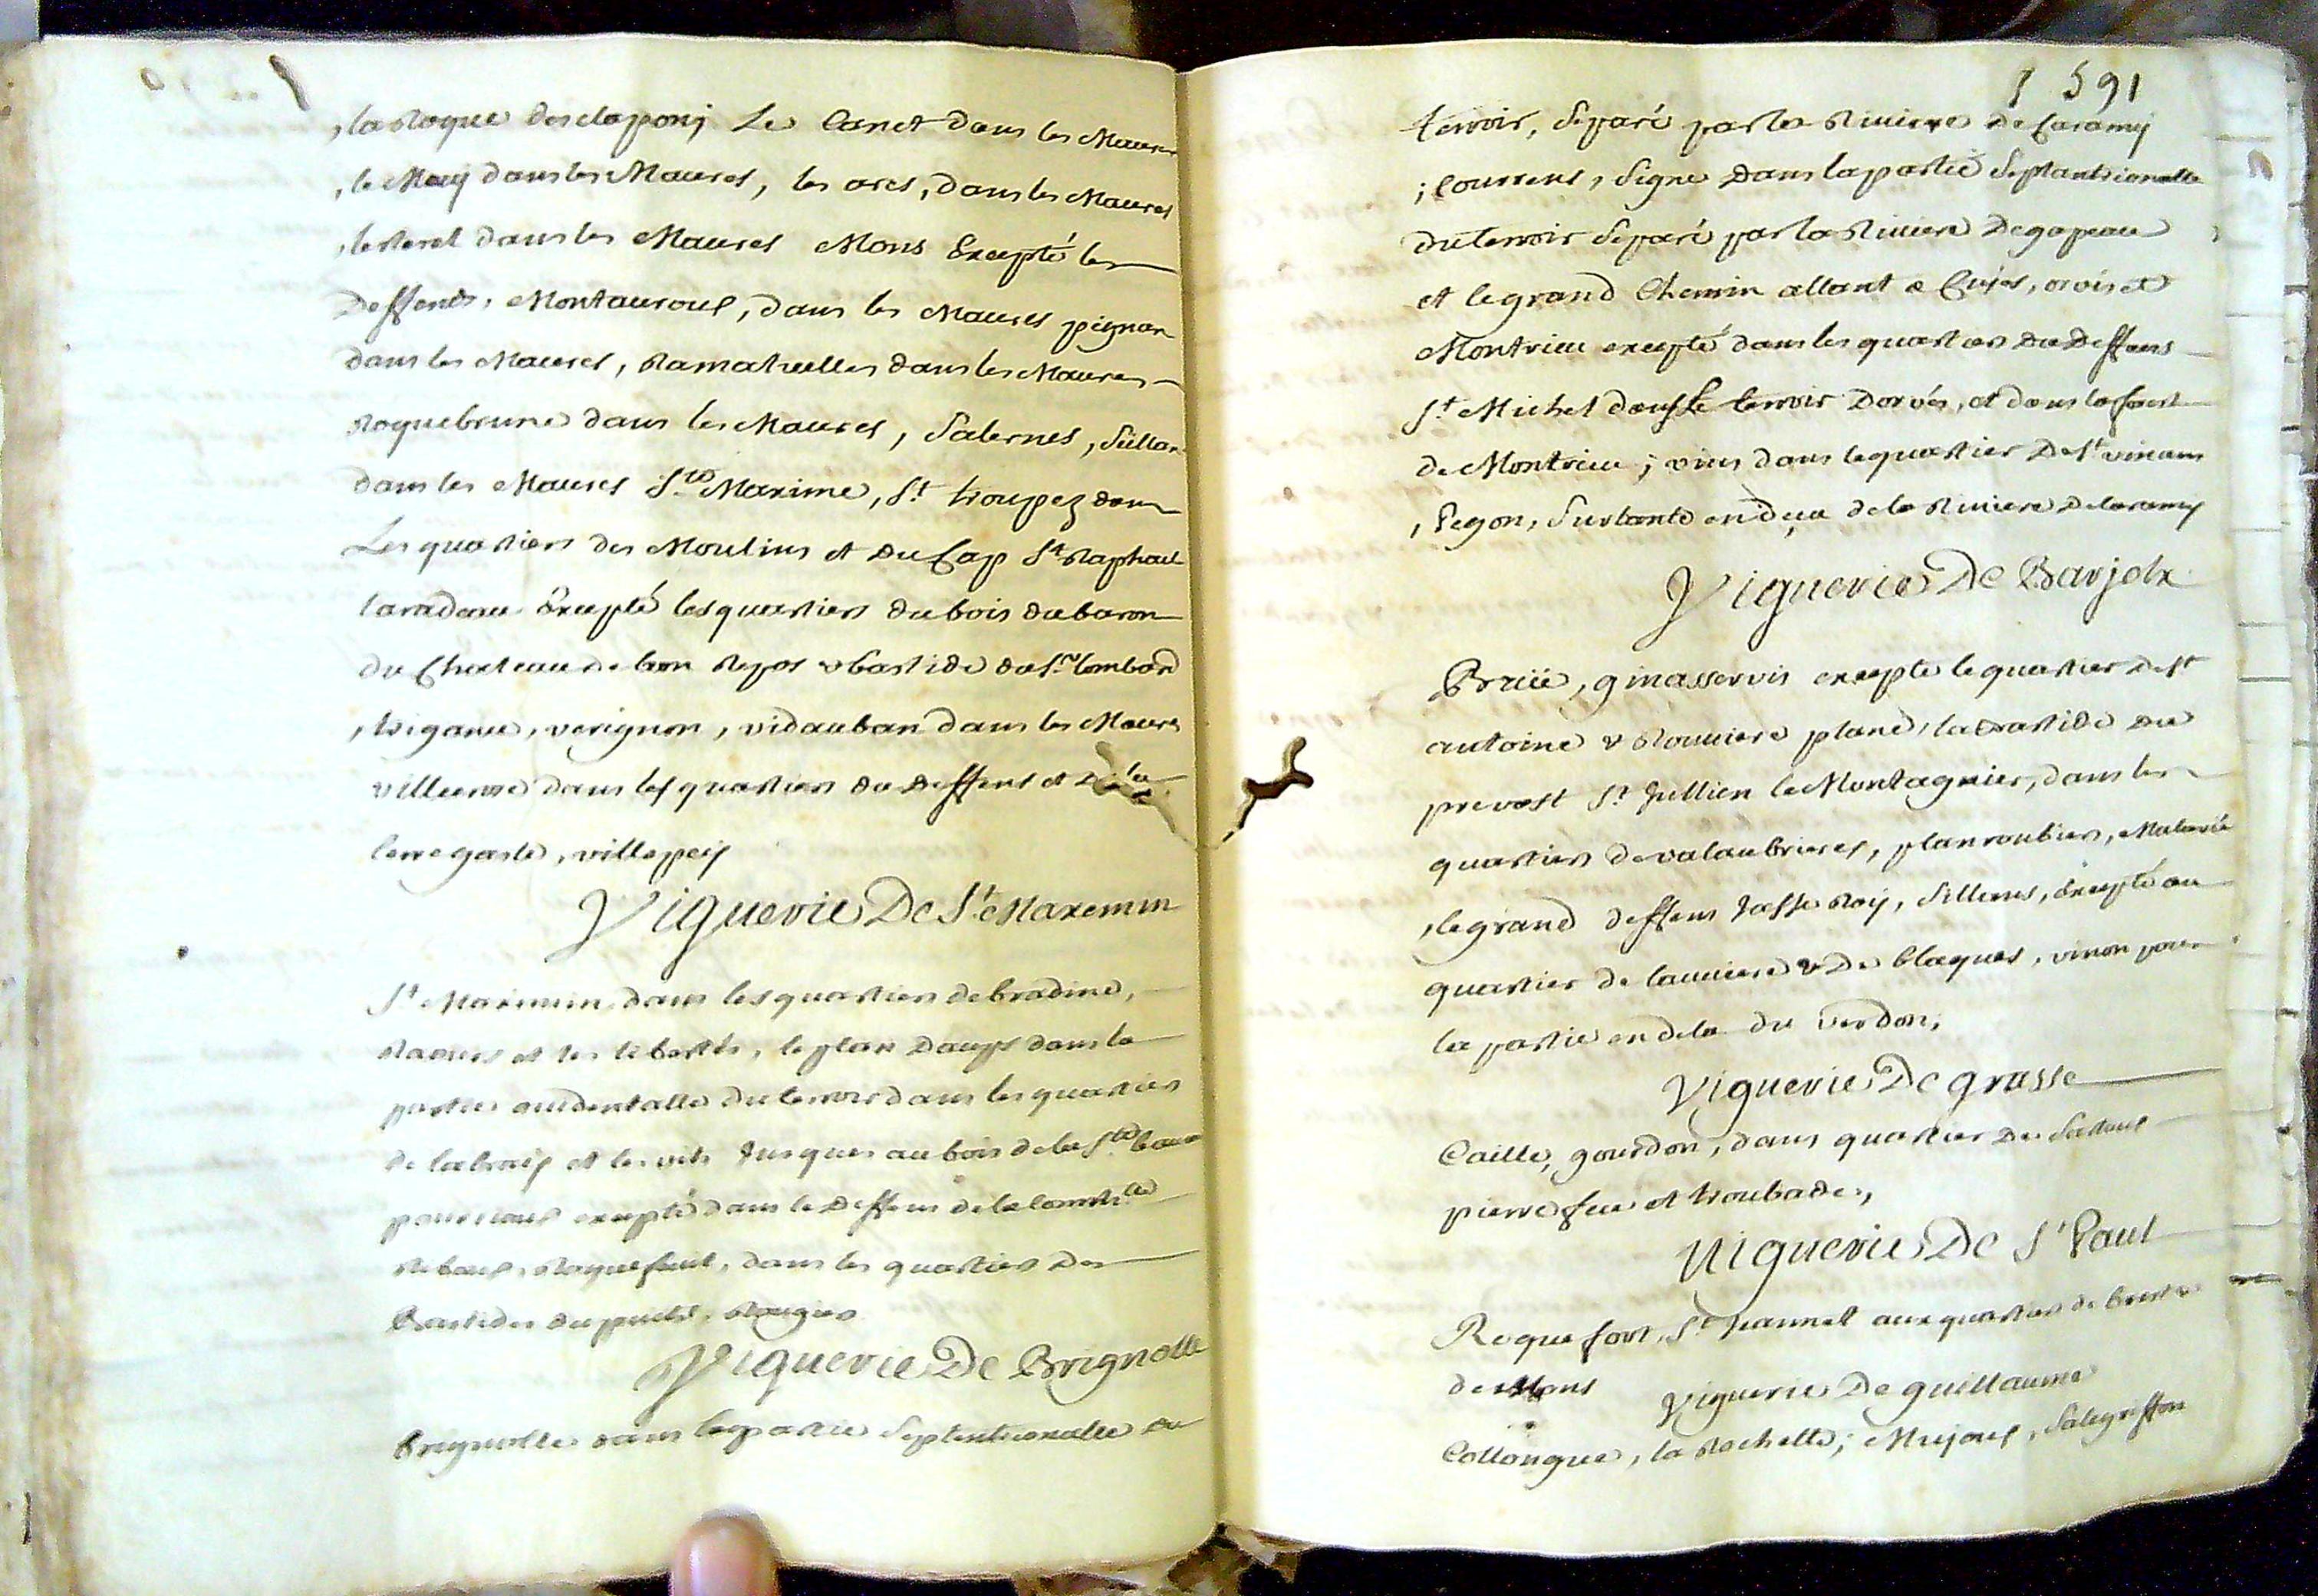 , la Roque desclapong Le Canet dans les Maures
, le Muy dans les Maures, les arcs, dans les Maures
, lesterel dans les Maures Mons Excepté les
Deffends, Montauroux, dans les Maures pignan
dans les Maures, Ramatuelles dans les Maures
Roquebrune dans les Maures, Salernes, Sillan
dans les Maures Ste Maxime, St troupez dans
Les quartiers des Moulins et Du Cap St Raphael
taradeau Excepté les quartiers du bois du baron
du Chateau de bon Repos & bastide du Sr lombard
, trigance, verignon, vidauban dans les Maures
villecroze dans les quartiers du Deffens et De la
terre gaste, villepeis
Viguerie De St Maxemin
St Maximin dans les quartiers de bradine,
et les libertés, le plan Daups dans la
partie occidentalle du terroir dans les quartiers
de et les jusques au bois de la Ste baume
pourcioux excepté dans le Deffens de la Commté
Roquefeuil, dans les quartiers Des
Bastides du Rougiers
Viguerie De Brignolle
Brignolles dans la partie Septentrionalle du
591
terroir, Separé par la Riviere de Caramy
; Courrens, Signe Dans la partie Septantrionalle
du terroir Separé par la Riviere De gapeau
et le grand Chemin allant a Cujes, orvis et
Montrieu excepté dans les quartiers Du Deffens
St Michel dans le terroir Dorvés, et dans la forest
de Montrieu ; vins dans le quartier De St vincens
, Segon, Surtante en deça de la Riviere De Caramy
Viguerie De Barjolx
Brüe, ginasservis excepté le quartier De St
antoine & Rouviere plane, la Bastide Du
prevost St Jullien le Montagnier, dans les
quartiers de valaubrieres, plan roubier,
, le grand deffens Roy, Sillans, Excepté au
quartier de lauviere & De blaques, vinon pour
la partie en dela du verdon,
Viguerie De grasse
Caille, gourdon, dans quartier De
pierrefeu et troubade,
Viguerie De St Paul
Roquefort, St Jeannet aux quartiers de
Viguerie De guillaume
Collongue, la Rochette; Mujouls, Salegriffon